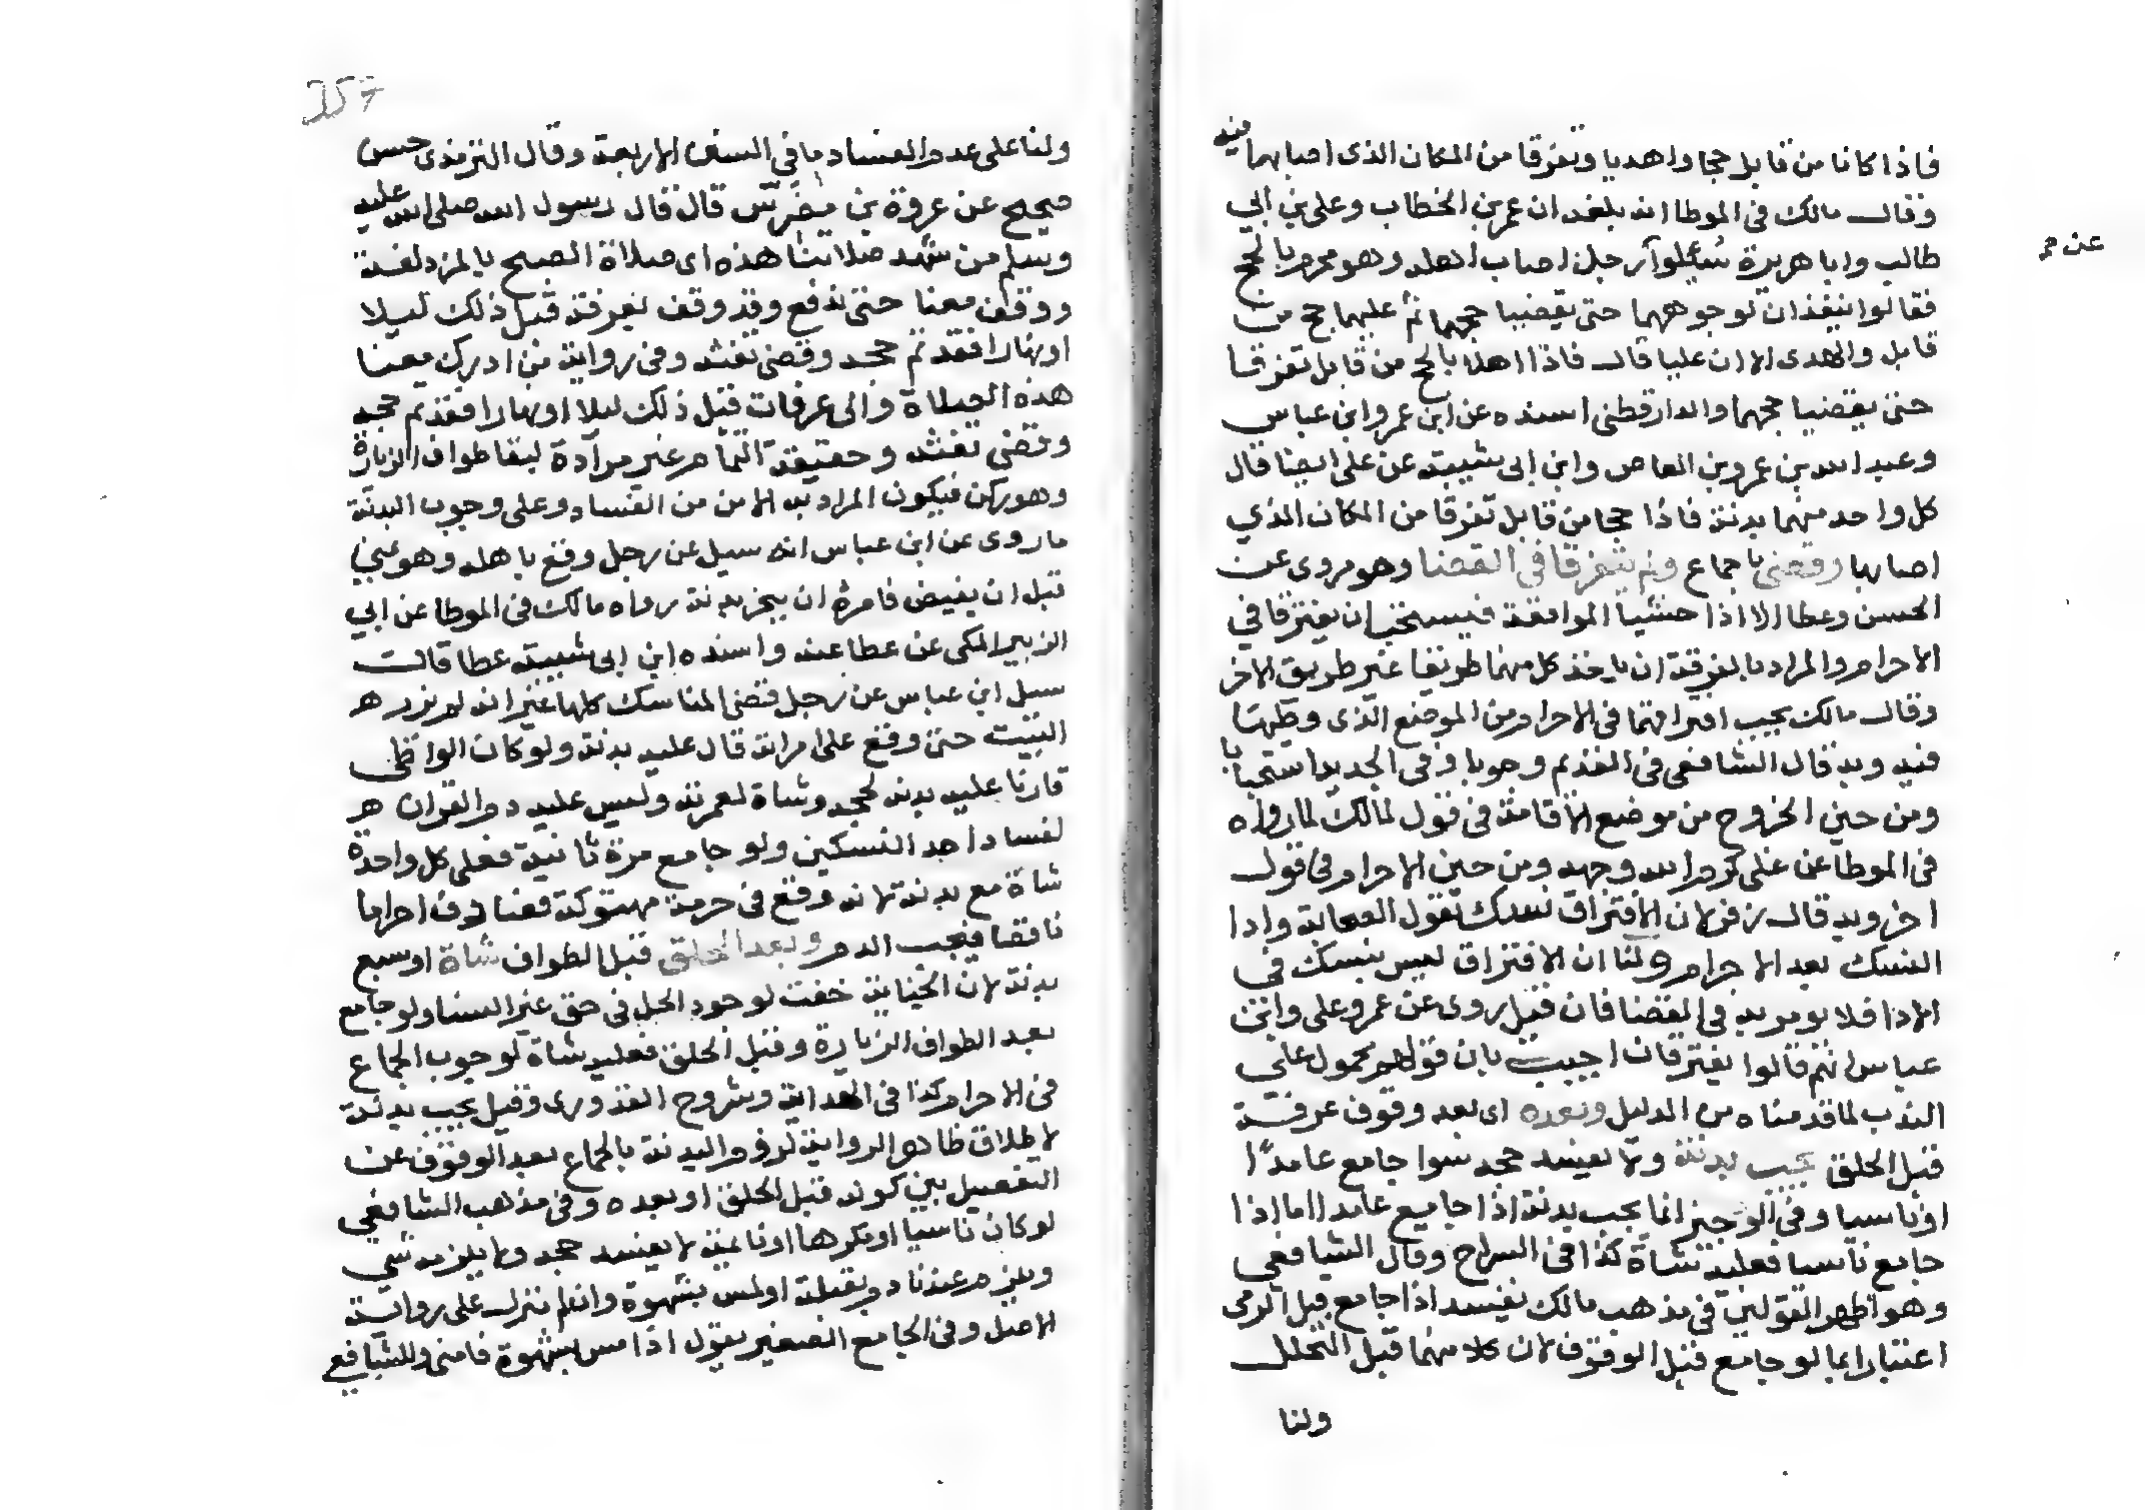 فاذا كانا من قابل حجا واهديا وتفرقا من المكان الذى اصابها فيه
وقال مالك فى الموطا انه بلغه ان عمر بن الخطاب وعلى بن ابي
طالب وابا هريرة سئلوا عن رجل اصاب اهله وهو محرم بالحج
عن
فقالوا ينفذان لوجوههما حتى يقضيا حجهما ثم عليهما حج من
قابل والهدى الا ان عليا قال فاذا اهلا بالحج من قابل تفرقا
حتى يقضيا حجهما والدارقطنى اسنده عن ابن عمر وابن عباس
وعبد الله بن عمرو بن العاص وابن ابى شيبة عن على ايضا قال
كل واحد منهما بدنة فاذا حجا من قابل تفرقا من المكان الذي
اصابها وقضى باجماع ولم يتفرقا فى القضا وهو مروى عن
الحسن وعطا الا اذا خشيا المواقعة فيستحب ان يفترقا في
الاحرام والمراد بالفرقة ان ياخذ كل منهما طريقا غير طريق الاخر
وقال مالك يجب افتراقهما فى الاحرام من الموضع الذى وطئها
فيه وبه قال الشافعى فى القديم وجوبا وفى الجديد استحبابا
ومن حين الخروج من موضع الاقامة فى قول لمالك لما رواه
فى الموطا عن على كرم الله وجهه ومن حين الاحرام فى قول
اخر وبه قال زفر لان الافتراق نسك بقول الصحابة وادا
النسك بعد الاحرام ولنا ان الافتراق ليس بنسك في
الادا فلا يومر به فى القضا فان قيل روى عن عمر وعلى وابن
عباس انهم قالوا يفترقان اجيب بان قولهم محمول على
الندب لما قدمناه من الدليل وبعده اى بعد وقوف عرفة
قبل الحلق يجب بدنة ولا يفسد حجه سوا جامع عامدًا
او ناسيا وفى الوجيز انما يجب بدنة اذا جامع عامدا اما اذا
جامع ناسيا فعليه شاة كذا فى السراج وقال الشافعي
وهو اظهر القولين فى مذهب مالك يفسد اذا جامع قبل الرمى
اعتبارا بما لو جامع قبل الوقوف لان كلا منهما قبل التحلل
ولنا
257
ولنا على عدم الفساد ما في السنن الاربعة وقال الترمذى حسن
صحيح عن عروة بن مضرس قال قال رسول الله صلى الله عليه
وسلم من شهد صلاتنا هذه اى صلاة الصبح بالمزدلفة
ووقف معنا حتى ندفع وقد وقف بعرفة قبل ذلك ليلا
او نهارا فقد تم حجه وقضى تفثه وفى رواية من ادرك معنا
هذه الصلاة واتى عرفات قبل ذلك ليلا او نهارا فقد تم حجه
وقضى تفثه وحقيقة التمام غير مرادة لبقا طواف الزيارة
وهو ركن فيكون المراد به الامن من الفساد وعلى وجوب البدنة
ما روى عن ابن عباس انه سيل عن رجل وقع باهله وهو بمنى
قبل ان يفيض فامره ان ينحر بدنة رواه مالك فى الموطا عن ابي
الزبير المكى عن عطا عنه واسنده ابن ابى شيبة عطا قال
سيل ابن عباس عن رجل قضى المناسك كلها غير انه لم يزر
البيت حتى وقع على امراته قال عليه بدنة ولو كان الواطى
قارنا عليه بدنه لحجه وشاة لعمرته وليس عليه دم القران
لفساد احد النسكين ولو جامع مرة ثانية فعلى كل واحدة
شاة مع بدنة لانه وقع فى حرمة مهتوكة فصادف احراما
ناقصا فيجب الدم وبعد الحلق قبل الطواف شاة او سبع
بدنة لان الجناية خفت لوجود الحل فى حق غير النسا ولو جامع
بعد الطواف الزيارة وقبل الحلق فعليه شاة لوجوب الجماع
فى الاحرام كذا فى الهداية وشروح القدورى وقيل يجب بدنة
لاطلاق ظاهر الرواية لزوم البدنة بالجماع بعد الوقوف عن
التفصيل بين كونه قبل الحلق او بعده وفى مذهب الشافعي
لو كان ناسيا او مكرها او نايمة لا يفسد حجه ولا يلزمه شي
ويلزم عندنا دم بقبلة او لمس بشهوة وان لم ينزل على رواية
الاصل وفى الجامع الصغير يقول اذا مس بشهوة فامنى وللشافعى